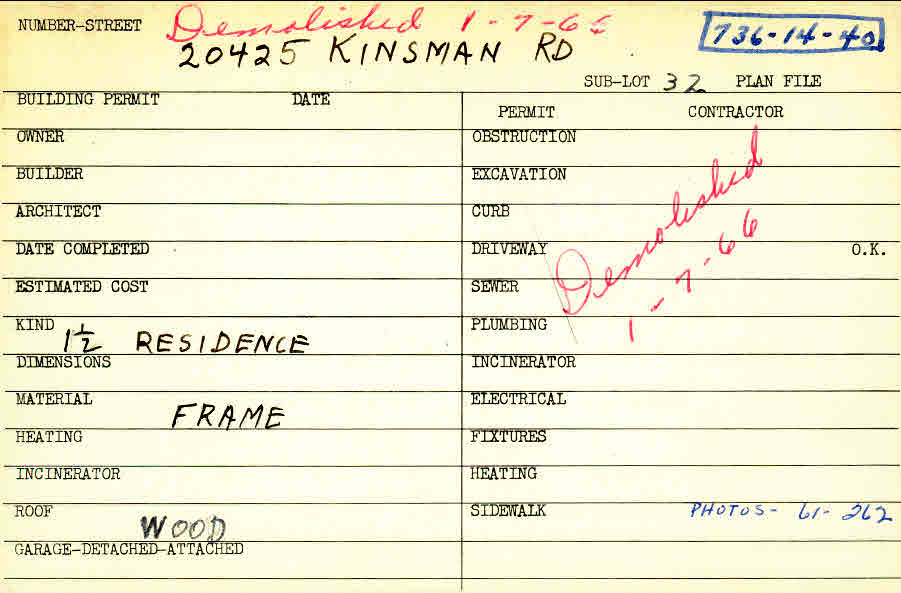 NUMBER-STREET Demolished 1-7-66
20425 KINSMAN RD
736-14-40
SUB-LOT 32 PLAN FILE
BUILDING PERMIT DATE
PERMIT CONTRACTOR
OWNER
OBSTRUCTION
BUILDER
EXCAVATION
ARCHITECT
CURB
DATE COMPLETED
DRIVEWAY O.K.
ESTIMATED COST
SEWER
Demolished
1-7-66
KIND 1½ RESIDENCE
PLUMBING
DIMENSIONS
INCINERATOR
MATERIAL FRAME
ELECTRICAL
HEATING
FIXTURES
INCINERATOR
HEATING
ROOF WOOD
SIDEWALK PHOTOS- 61-262
GARAGE-DETACHED-ATTACHED